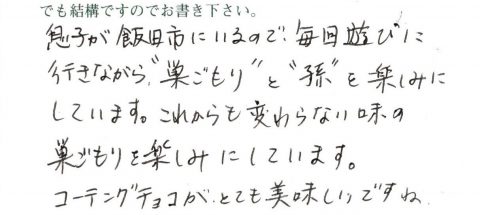 でも結構ですのでお書き下さい。
息子が飯田市にいるので、毎回遊びに
行きながら、"巣ごもり"と"孫"を楽しみに
しています。これからも変わらない味の
巣ごもりを楽しみにしています。
コーテングチョコが、とても美味しいですね